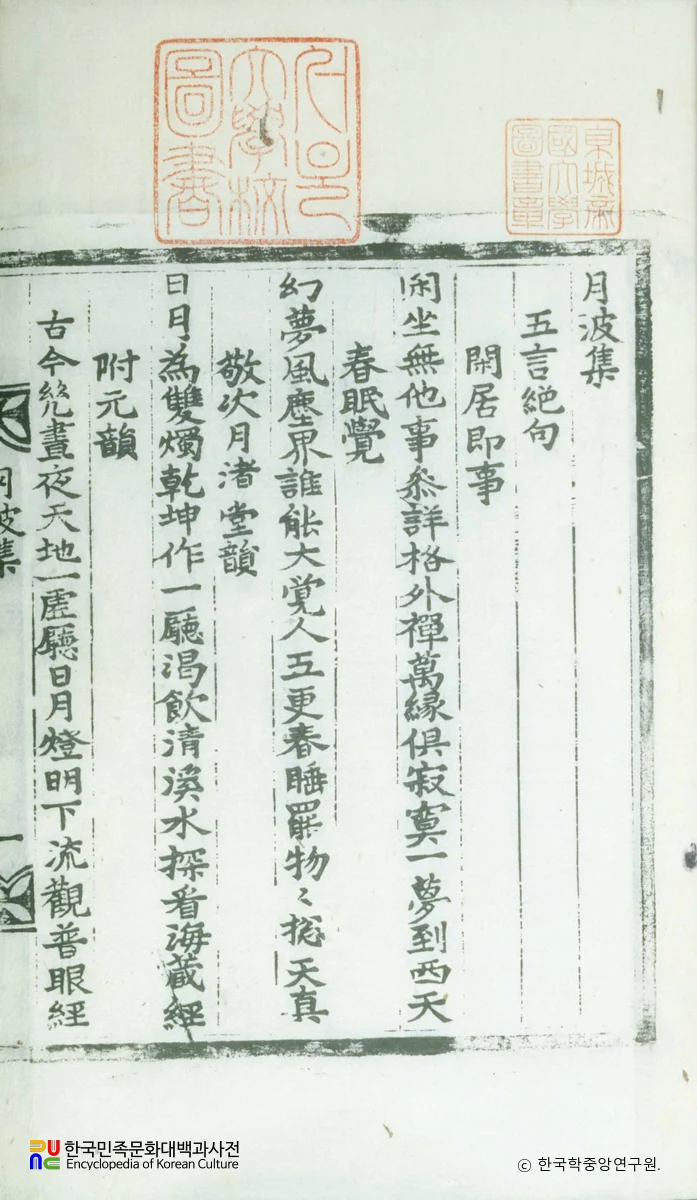 서울大學校圖書
京城帝國大學圖書章
月波集
五言絶句
閑居即事
闲坐無他事叅詳格外禪萬緣俱寂寞一夢到西天
春眠覺
幻夢風塵界誰能大覚人五更春睡罷物〻揔天真
敬次月渚堂韻
日月為雙燭乾坤作一廳渴飲清溪水探看海藏經
附元韻
古今統晝夜天地一虗廳日月燈明下流觀普眼経
月波集 一
한국민족문화대백과사전
Encyclopedia of Korean Culture
ⓒ 한국학중앙연구원.